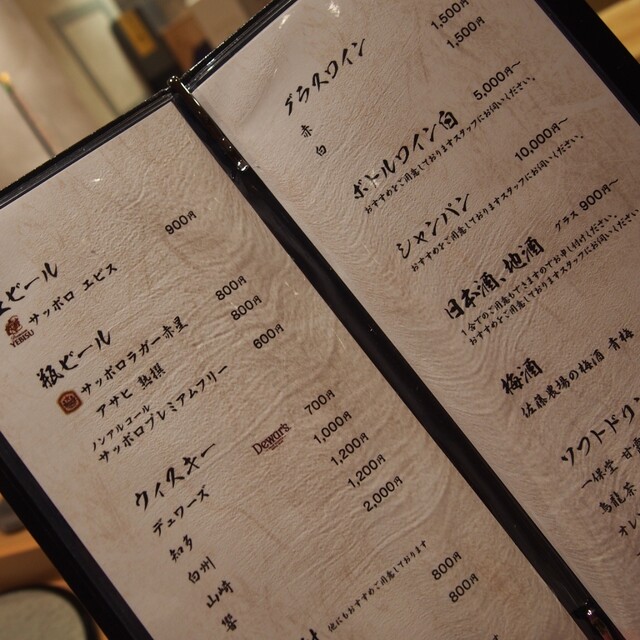 ビール
YEBISU
サッポロ ヱビス 900円
瓶ビール
サッポロラガー赤星 800円
アサヒ 熟撰 800円
ノンアルコール
サッポロプレミアムフリー 600円
ウィスキー
デュワーズ Dewar's 700円
知多 1,000円
白州 1,200円
山崎 1,200円
響 2,000円
他にもおすすめご用意しております
800円
800円
グラスワイン
赤 1,500円
白 1,500円
ボトルワイン白 5,000円〜
おすすめをご用意しておりますスタッフにお伺いください。
シャンパン 10,000円〜
おすすめをご用意しておりますスタッフにお伺いください。
日本酒、地酒 グラス 900円〜
おすすめをご用意しておりますスタッフにお伺いください。
梅酒
佐藤農場の梅酒 青梅
ソフトドリン
一保堂
烏龍茶
オレ